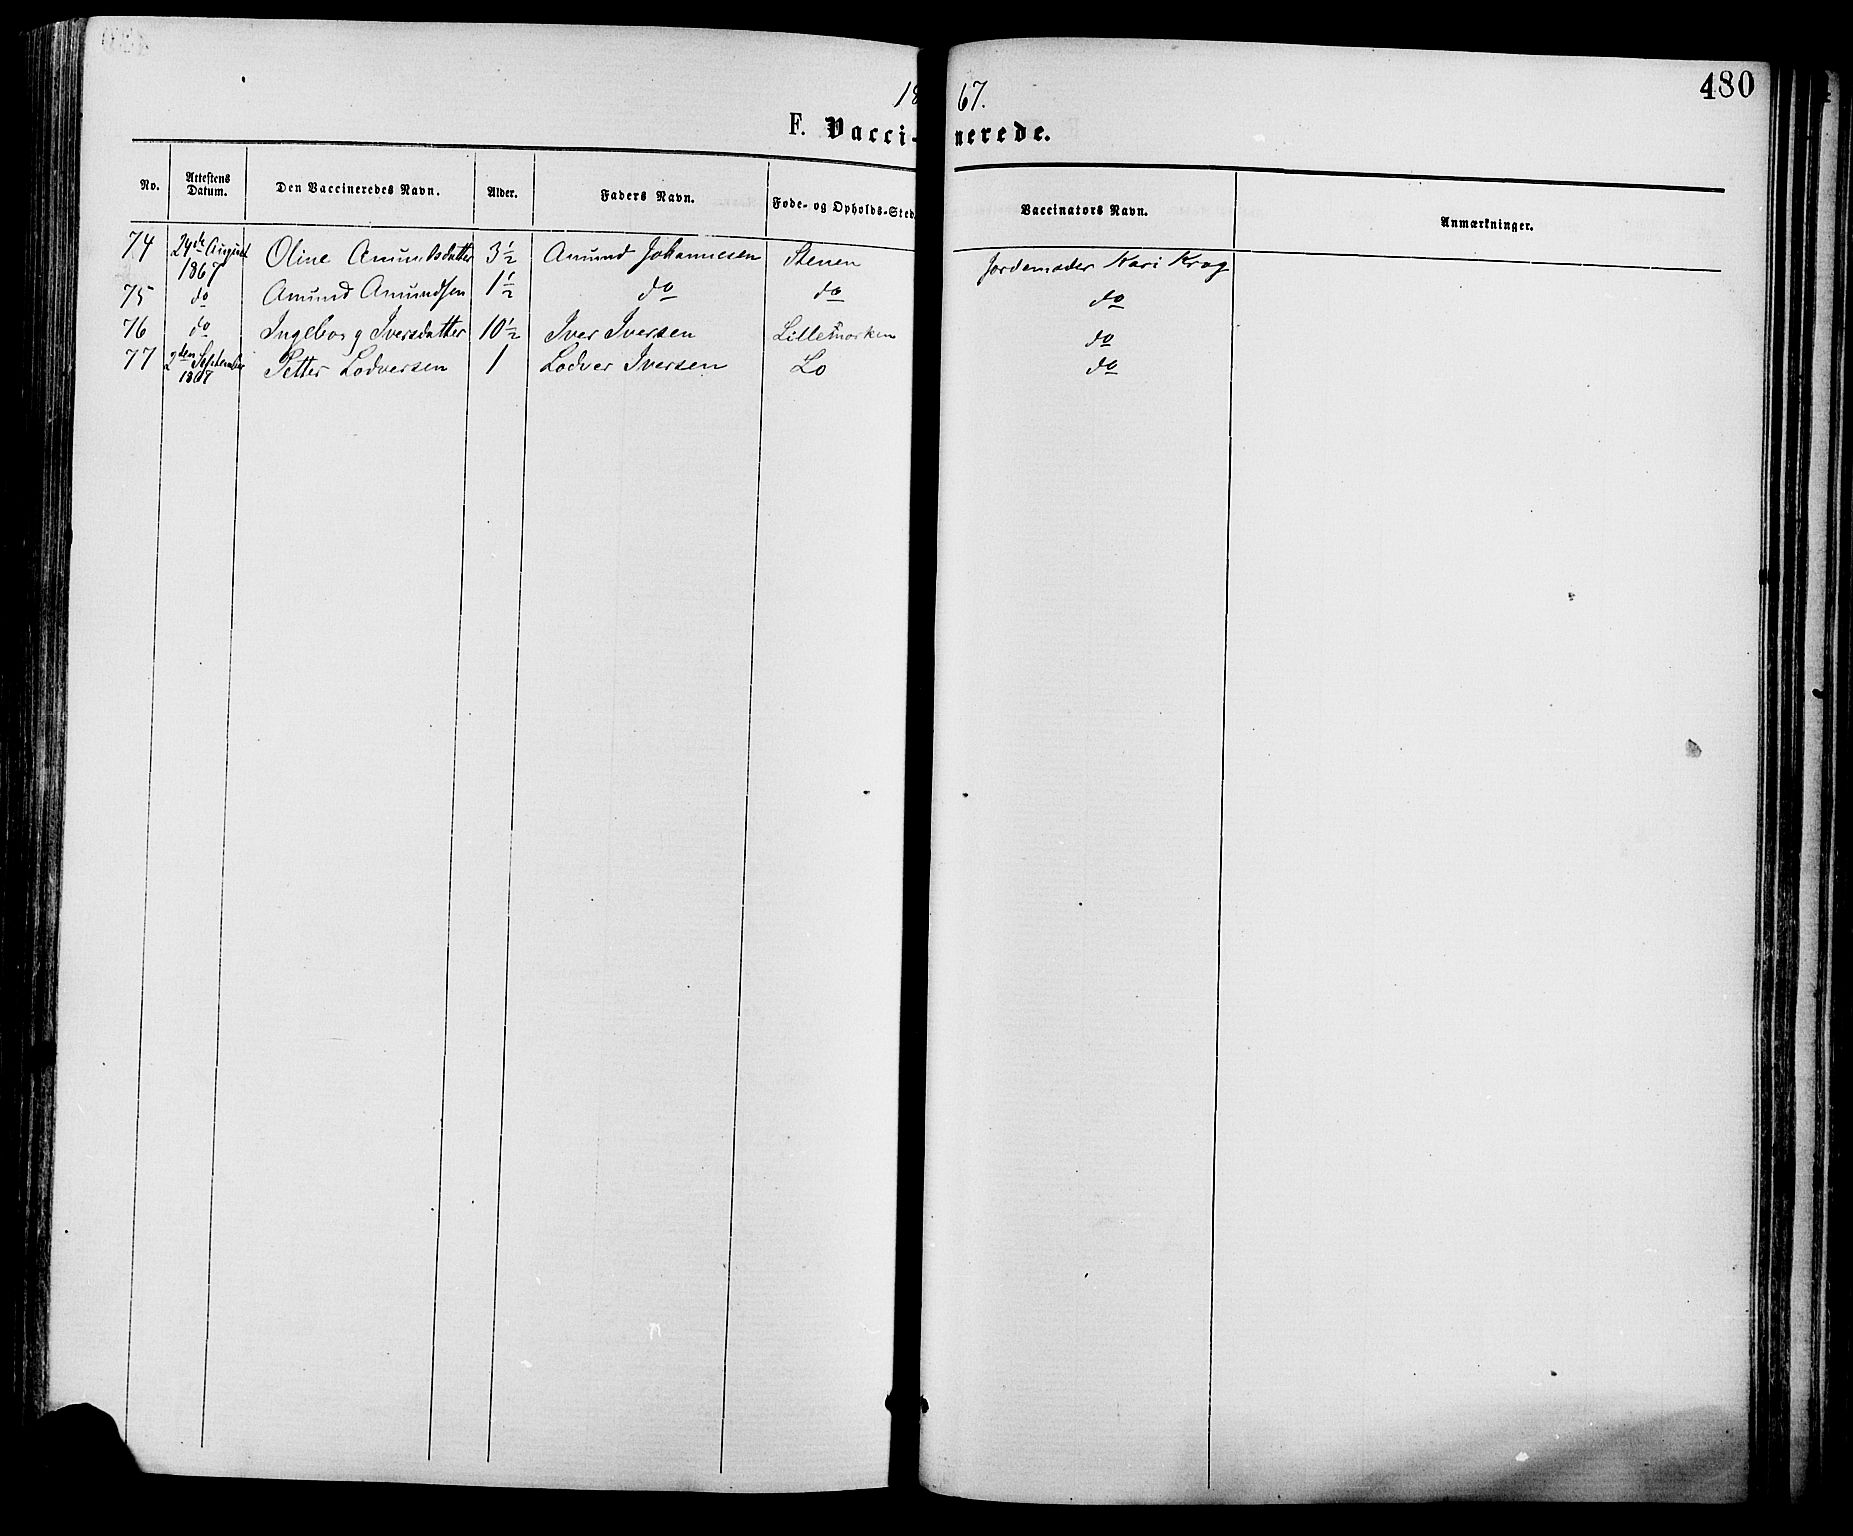 480
1867.
F. Vaccinerede.
No. Attestens Datum. Den Vaccineredes Navn. Alder. Faders Navn. Føde- og Opholds-Sted. Vaccinators Navn. Anmærkninger.
74 24de August 1867 Oline Amundsdatter 3 1/2 Amund Johannesen Stenen Jordemoder Kari Krog
75 do Amund Amundsen 1 1/2 do do do
76 do Ingeborg Iversdatter 10 1/2 Iver Iversen Lillemorken do
77 2den September 1867 Petter Lodversen 1 Lodver Iversen Lo do